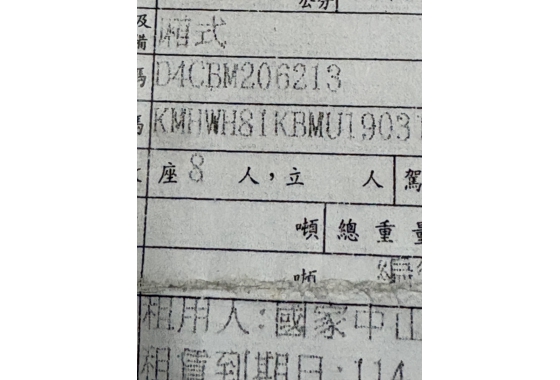 公分
及備 廂式
碼 D4CBM206213
KMHWH81KBMU19031
座8 人,立 人 駕
噸 總重量
噸
租用人:國家中山
租賃到期日:114